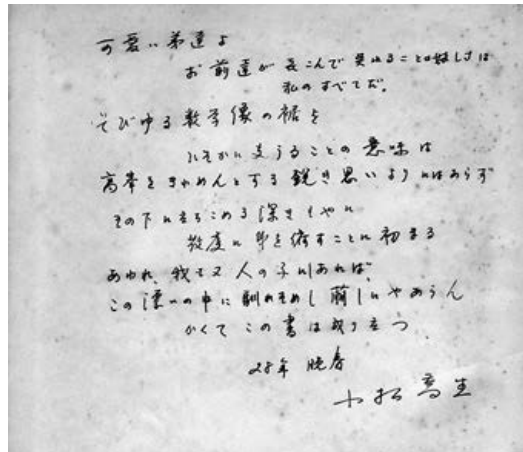 可愛い弟達よ
お前達が喜こんで呉れることの嬉しさは
私のすべてだ。
そびゆる数学像の裾を
ひそかに支うることの意味は
高峯をきわめんとする鋭き思いよりにはあらず
その下に立ちこめる深きもやに
敬虔に身を すことに初まる
あわれ、我も又人の子にあれば、
この漂 の中に馴れそめし 前しにやあらん
かくてこの書は成り立つ
28年 晩春
小松高生